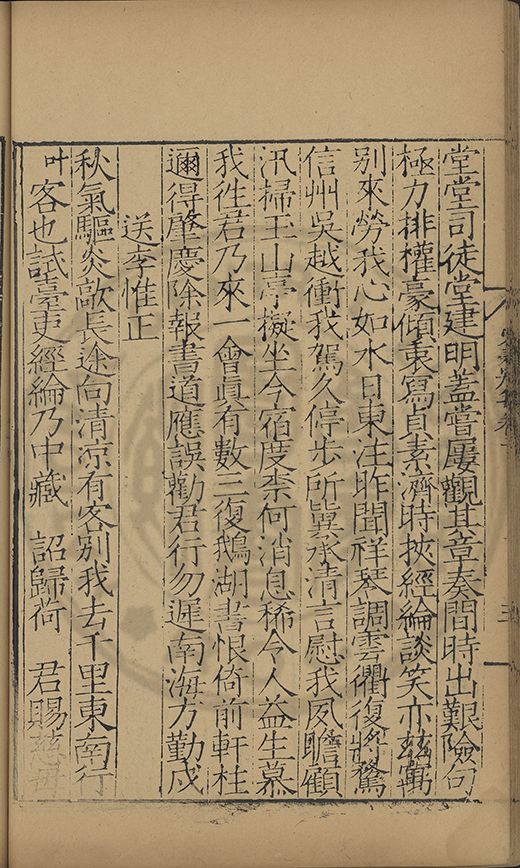 堂堂司徒堂建明蓋嘗屢觀其章奏間時出艱險句
極力排權豪傾衷寫貞素濟時挾經綸談笑亦茲寓
別來勞我心如水日東注昨聞祥琴調雲衢復將騖
信州吳越衝我駕久停步所冀承清言慰我夙瞻顧
汛掃玉山亭擬坐今宿度柰何消息稀令人益生慕
我徃君乃來一會眞有數三復鵝湖書恨倚前軒柱
邇得肇慶除報書道應誤勸君行勿遲南海方勤戍
送李惟正
秋氣驅炎歊長途向清凉有客別我去千里東南行
叶客也試臺吏經綸乃中藏 詔歸荷 君賜慈母